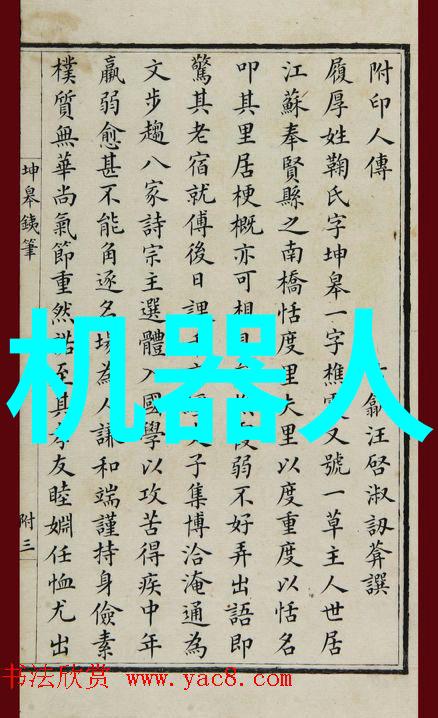 附印人傳
歙汪啓淑訒葊撰
履厚姓鞠氏字坤皋一字樵又號一草主人世居
江蘇奉賢縣之南橋恬度里夫里以度重度以恬名
叩其里居梗概亦可想弱不好弄出語即
驚其老宿就傅後日課子集博洽淹通為
文步趨八家詩宗主選體入國學以攻苦得疾中年
羸弱愈甚不能角逐名場為人謙和端謹持身儉素
樸質無華尚氣節重然諾至其友睦婣任恤尤出
坤皋銕筆
附三
机器人
书法欣赏 www.yac8.com